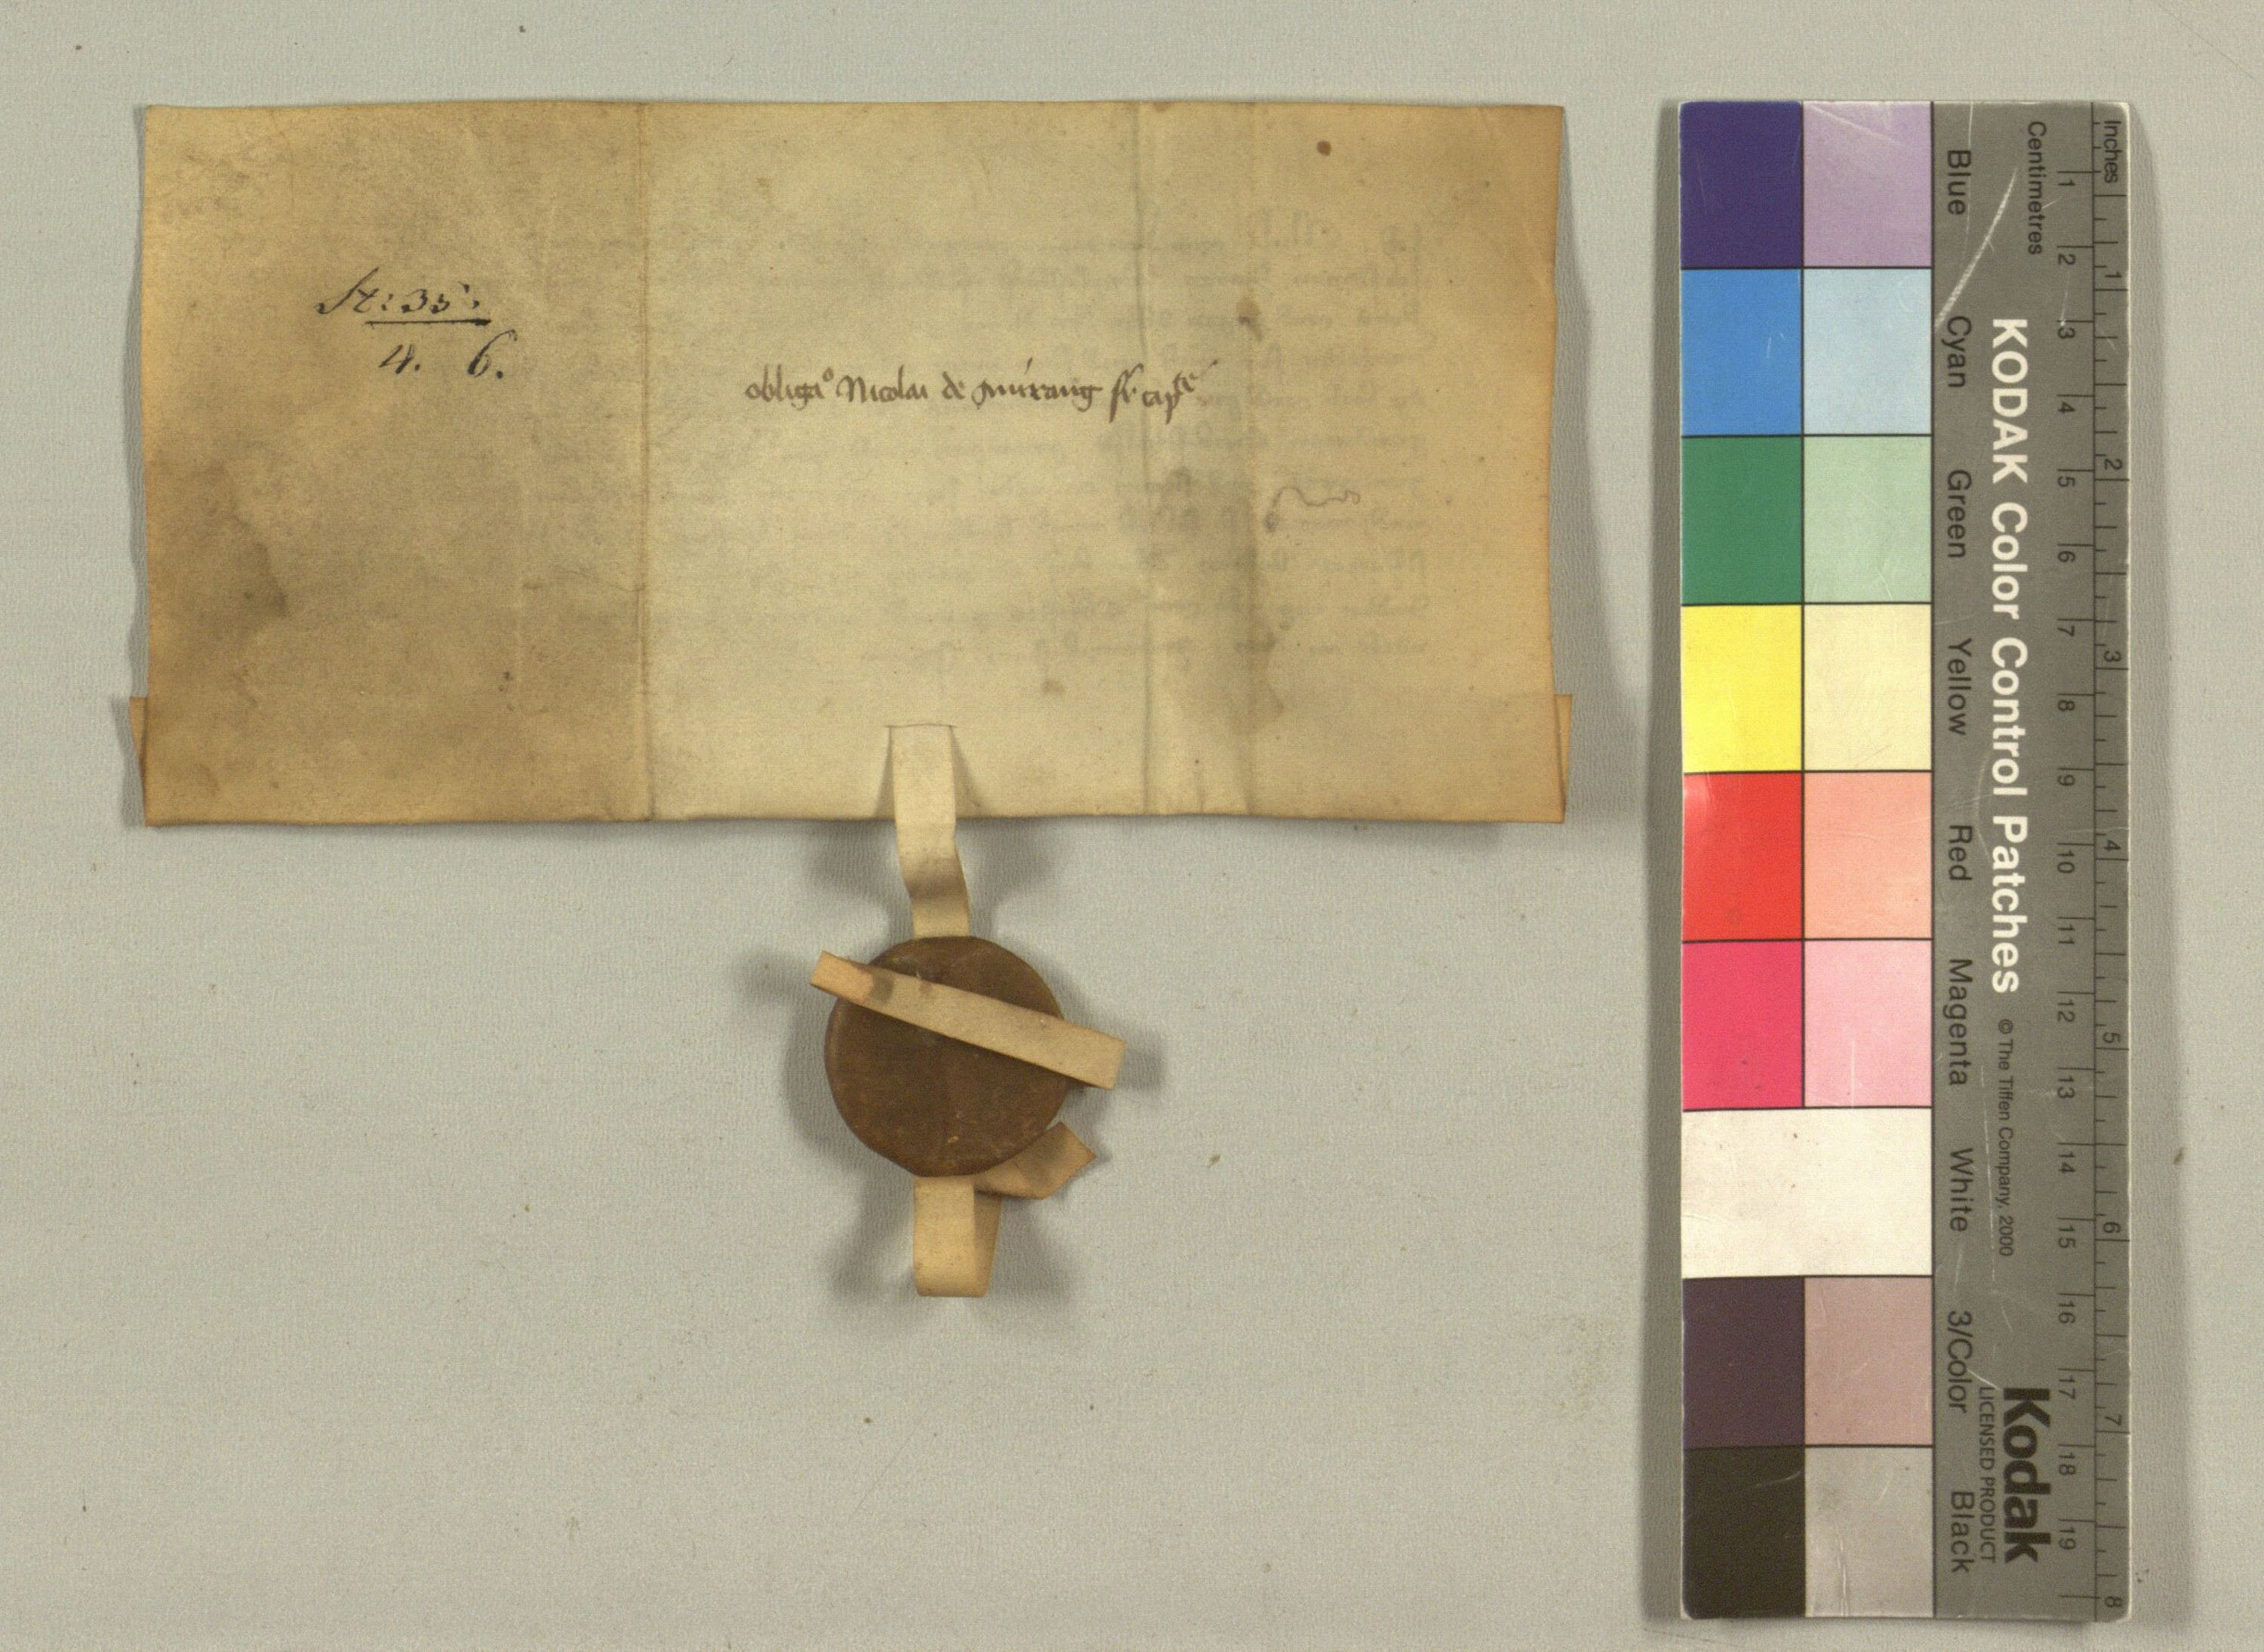 St: 35.
4. 6.
obliga° Nicolai de
Inches
Centimetres
KODAK Color Control Patches © The Tiffen Company, 2000
Kodak
LICENSED PRODUCT
Blue Cyan Green Yellow Red Magenta White 3/Color Black
1 2 3 4 5 6 7 8 9 10 11 12 13 14 15 16 17 18 19
1 2 3 4 5 6 7 8